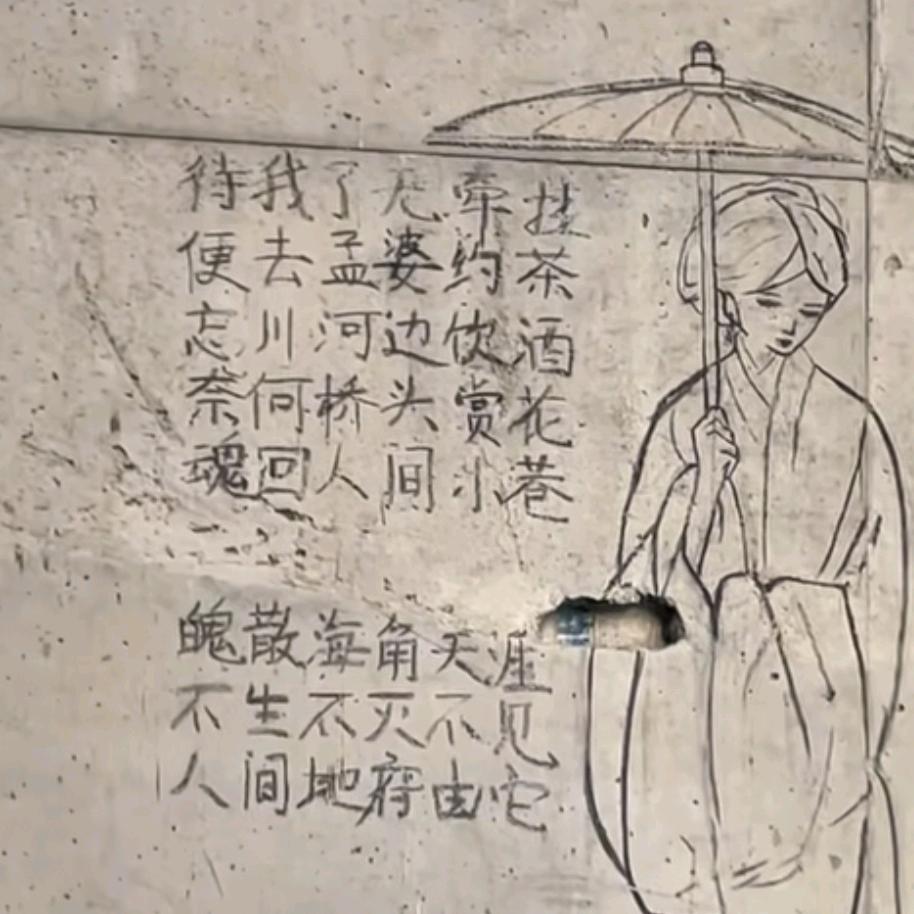 待我了无牵挂
便去孟婆约茶
忘川河边饮酒
奈何桥头赏花
魂回人间小巷
魄散海角天涯
不生不灭不见
人间地府由它